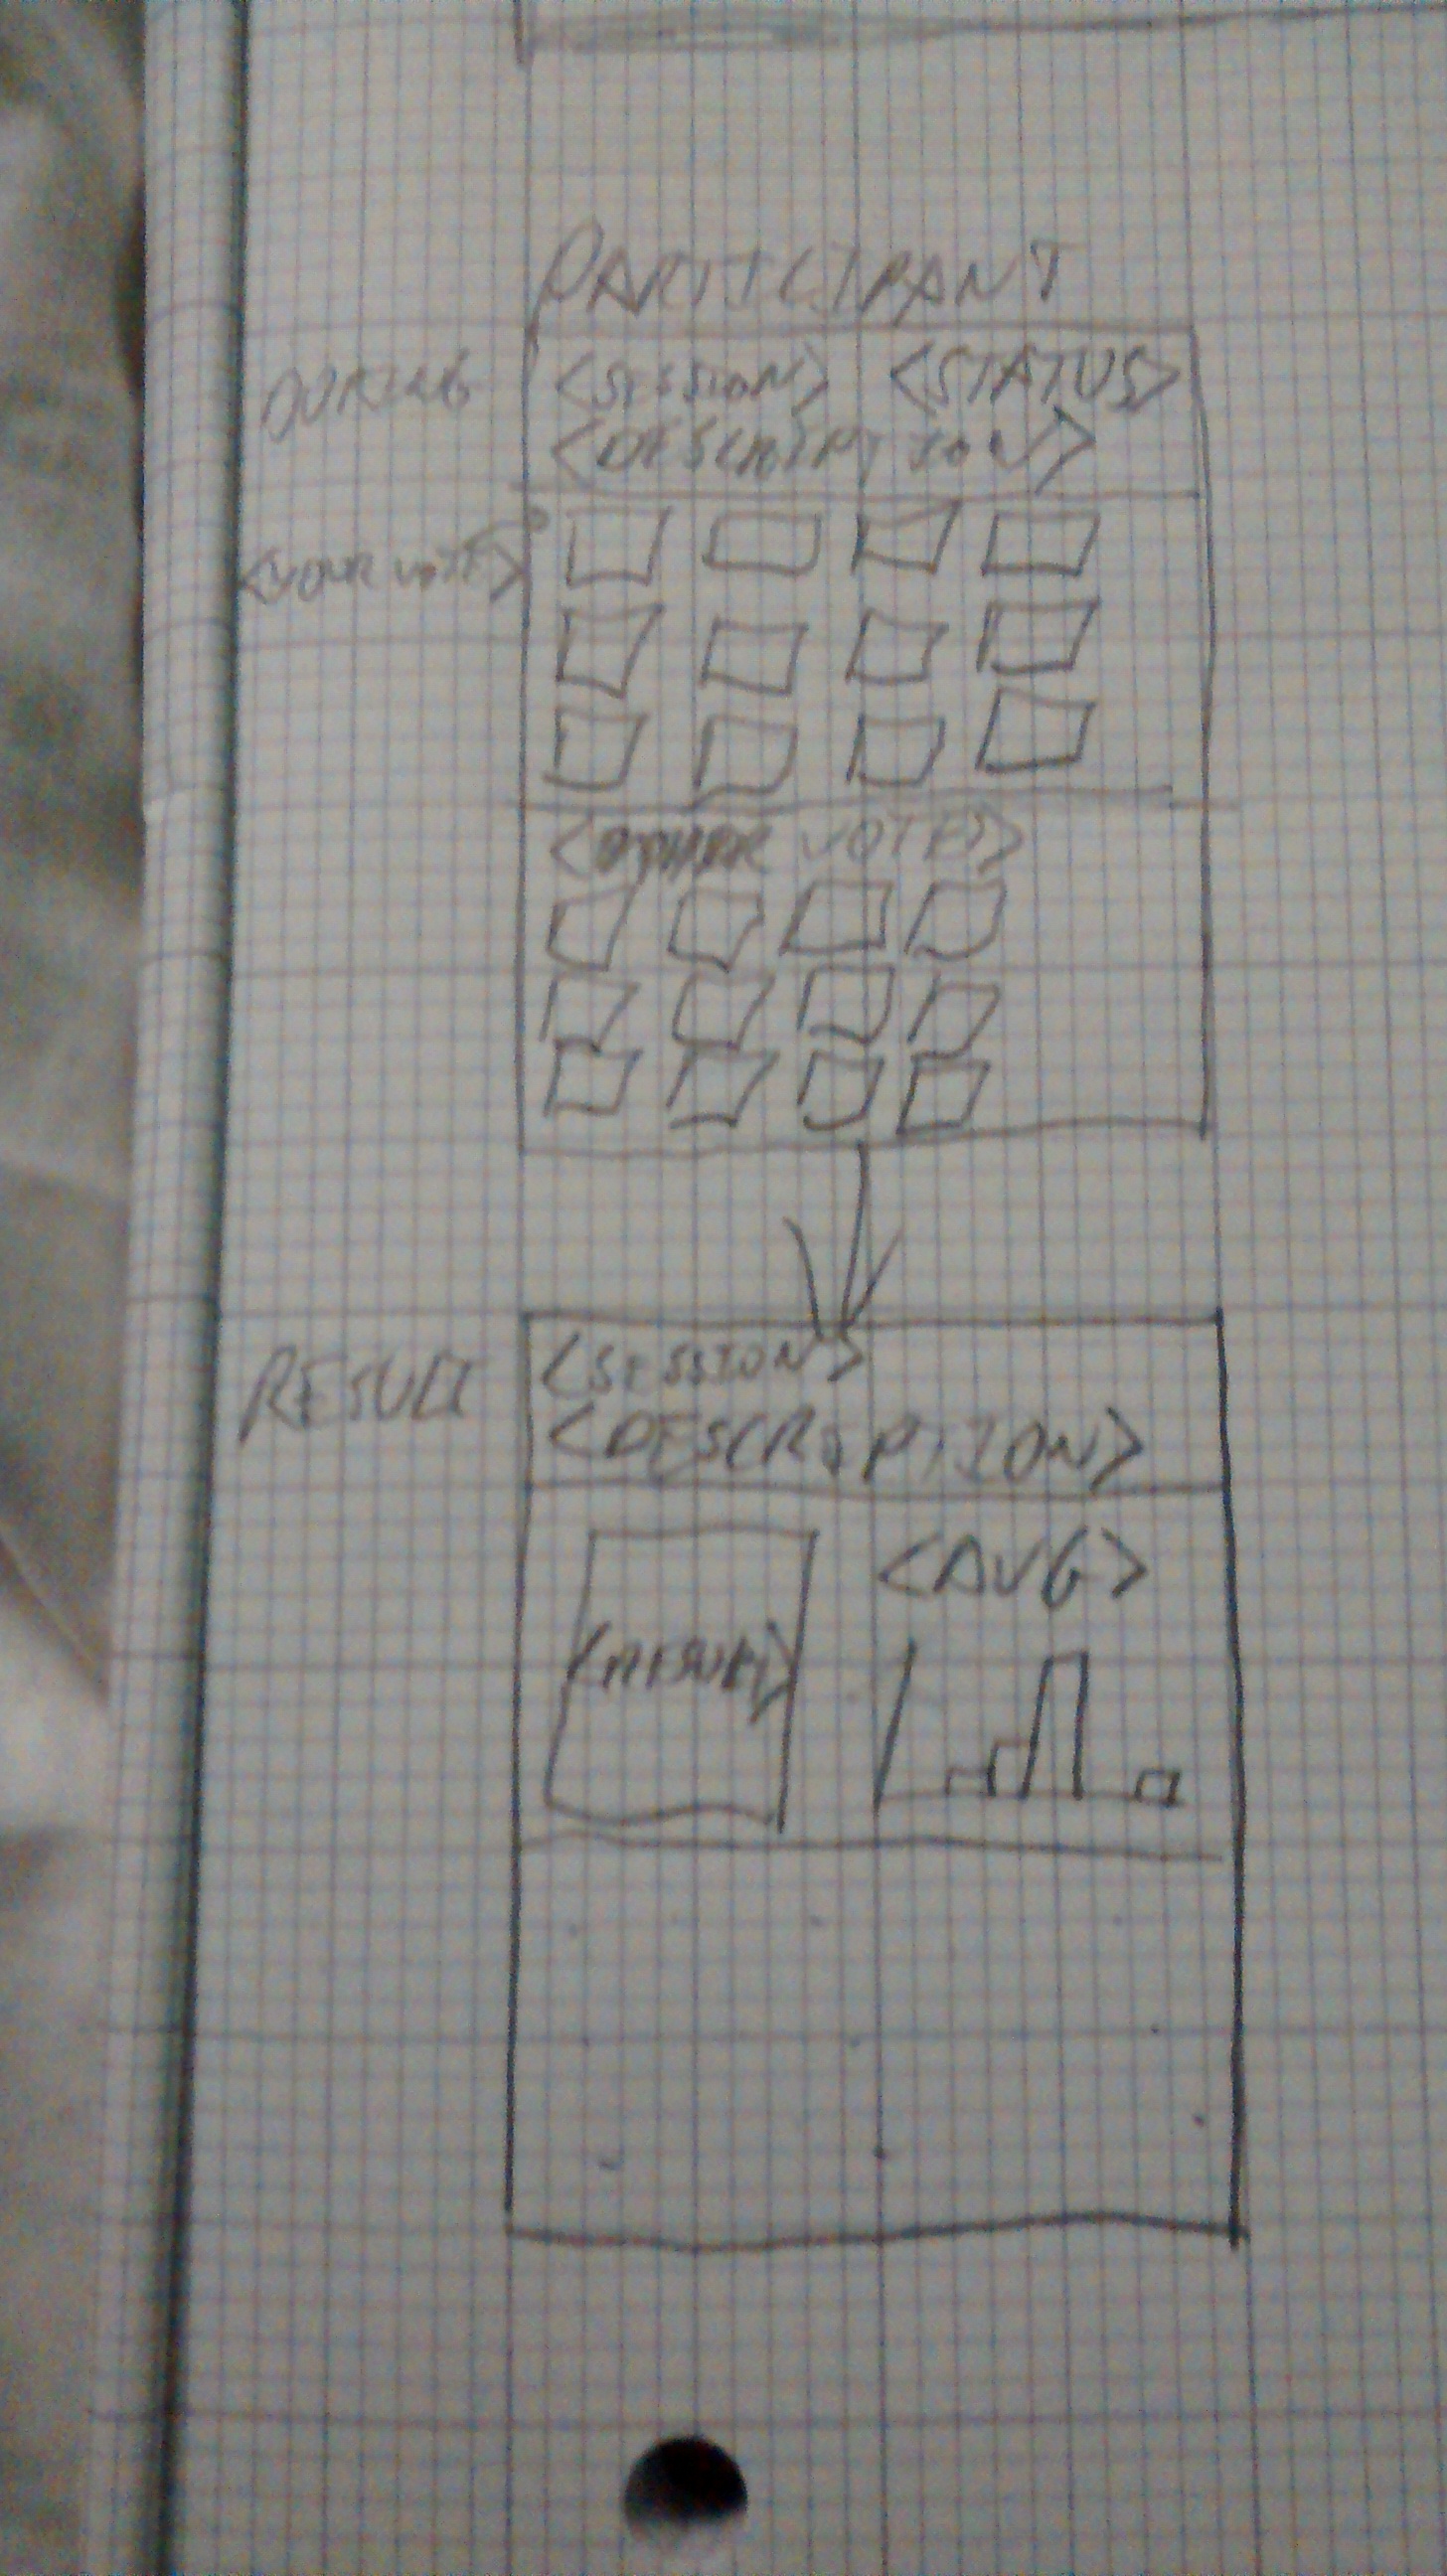 PARTICIPANT
DURING
<SESSION> <STATUS>
<DESCRIPTION>
<YOUR VOTE>
<OTHER VOTES>
RESULT
<SESSION>
<DESCRIPTION>
<RESULT>
<AVG>